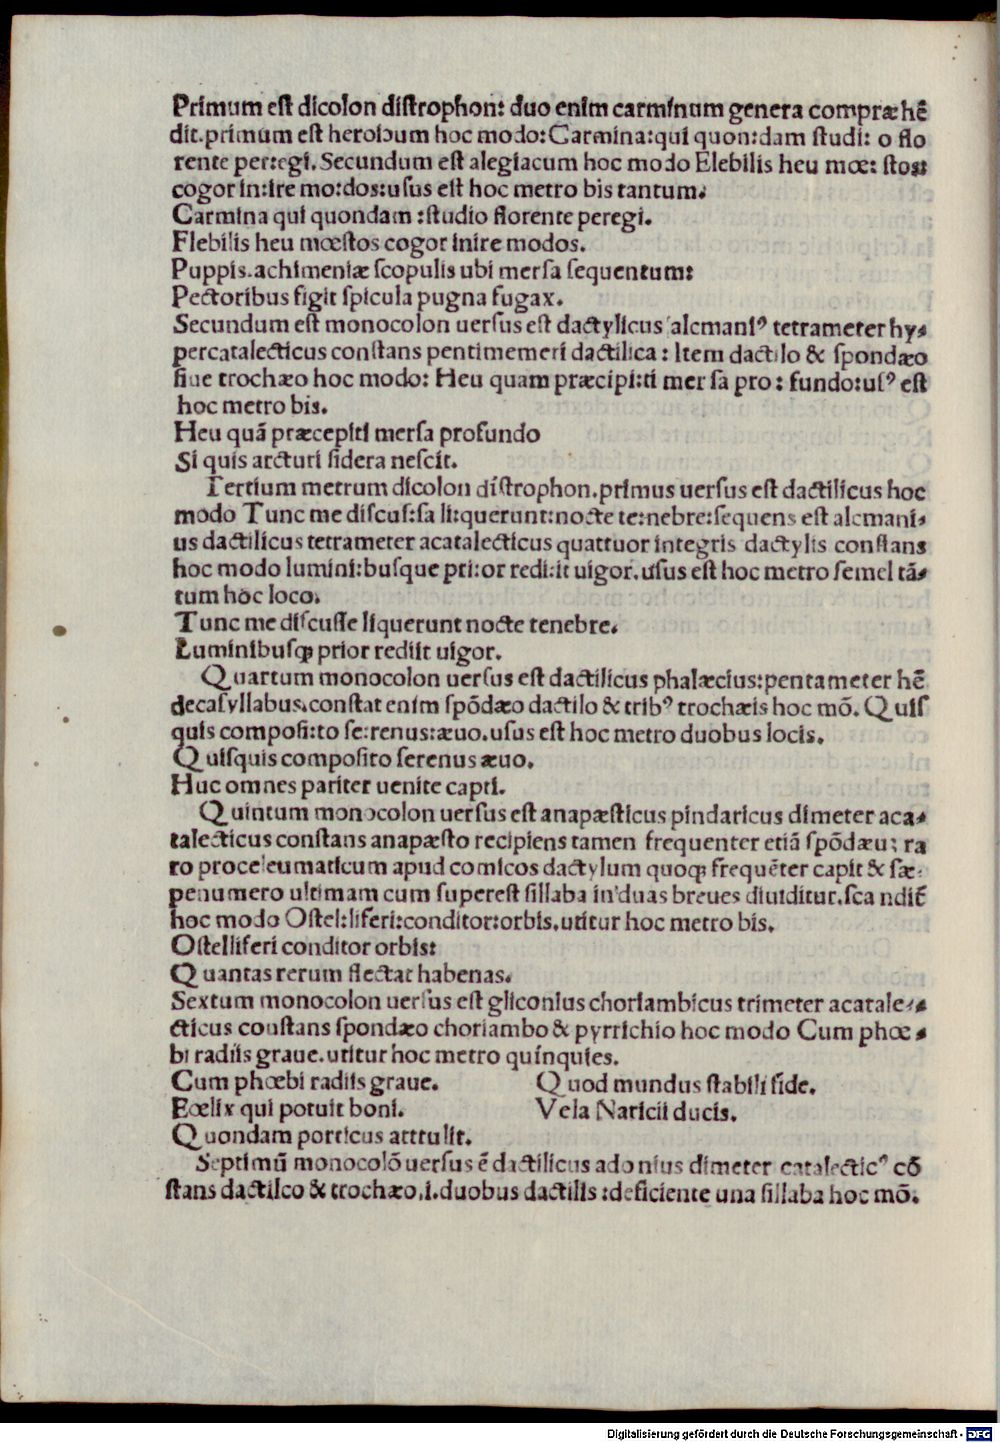 Primum est dicolon distrophon: duo enim carminum genera compræhẽ
dit.primum est heroicum hoc modo:Carmina:qui quon:dam studi: o flo
rente per:egi.Secundum est alegiacum hoc modo Elebilis heu mœ: stos:
cogor in:ire mo:dos:usus est hoc metro bis tantum.
Carmina qui quondam :studio florente peregi.
Flebilis heu mœstos cogor inire modos.
Puppis.achimeniæ scopulis ubi mersa sequentum:
Pectoribus figit spicula pugna fugax.
Secundum est monocolon uersus est dactylicus alcmaniꝰ tetrameter hy-
percatalecticus constans pentimemeri dactilica: Item dactilo & spondæo
siue trochæo hoc modo: Heu quam præcipi:ti mer sa pro: fundo:usꝰ est
hoc metro bis.
Heu quã præcepiti mersa profundo
Si quis arcturi sidera nescit.
Tertium metrum dicolon distrophon.primus uersus est dactilicus hoc
modo Tunc me discus:sa li:querunt:nocte te:nebre:sequens est alcmani-
us dactilicus tetrameter acatalecticus quattuor integris dactylis constans
hoc modo lumini:busque pri:or redi:it uigor.usus est hoc metro semel tã-
tum hoc loco.
Tunc me discusse liquerunt nocte tenebre.
Luminibusꝙ prior rediit uigor.
Quartum monocolon uersus est dactilicus phalæcius:pentameter hẽ
decasyllabus.constat enim spõdæo dactilo & tribꝰ trochæis hoc mõ. Quis
quis composi:to se:renus:æuo.usus est hoc metro duobus locis.
Quisquis composito serenus æuo.
Huc omnes pariter uenite capti.
Quintum monocolon uersus est anapæsticus pindaricus dimeter aca-
talecticus constans anapæsto recipiens tamen frequenter etiã spõdæu; ra
ro proceleumaticum apud comicos dactylum quoqꝫ frequẽter capit & sæ-
penumero ultimam cum superest sillaba in duas breues diuiditur.sca ndit̃
hoc modo Ostel:liferi:conditor:orbis.utitur hoc metro bis.
Ostelliferi conditor orbis:
Quantas rerum flectat habenas.
Sextum monocolon uersus est gliconius choriambicus trimeter acatale-
cticus constans spondæo choriambo & pyrrichio hoc modo Cum phœ-
bi radiis graue.utitur hoc metro quinquies.
Cum phœbi radiis graue. Quod mundus stabili fide.
Eœlix qui potuit boni. Vela Naricii ducis.
Quondam porticus atttulit.
Septimũ monocolõ uersus ẽ dactilicus adonius dimeter catalecticꝰ cõ
stans dactilco & trochæo.i.duobus dactilis :deficiente una sillaba hoc mõ.
Digitalisierung gefördert durch die Deutsche Forschungsgemeinschaft - DFG